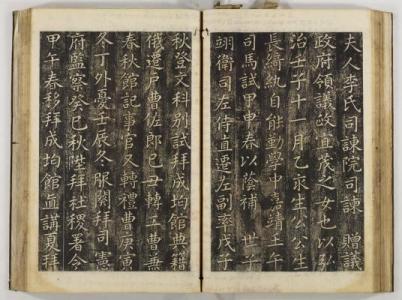 夫人李氏司諫院司諫 贈議
政府領議政宜茂之女也以弘
治壬子十一月乙亥生公公生
長綺紈自能勤學中嘉靖壬午
司馬試甲申春以蔭補 世子
翊衛司左侍直遷左副率戊子
秋登文科別試拜成均館典籍
俄遷戶曹佐郎己丑轉工曹兼
春秋館記事官又轉禮曹庚寅
冬丁外憂壬辰冬服闋拜司憲
府監察癸巳秋陞拜社稷署令
甲午春移拜成均館直講夏拜